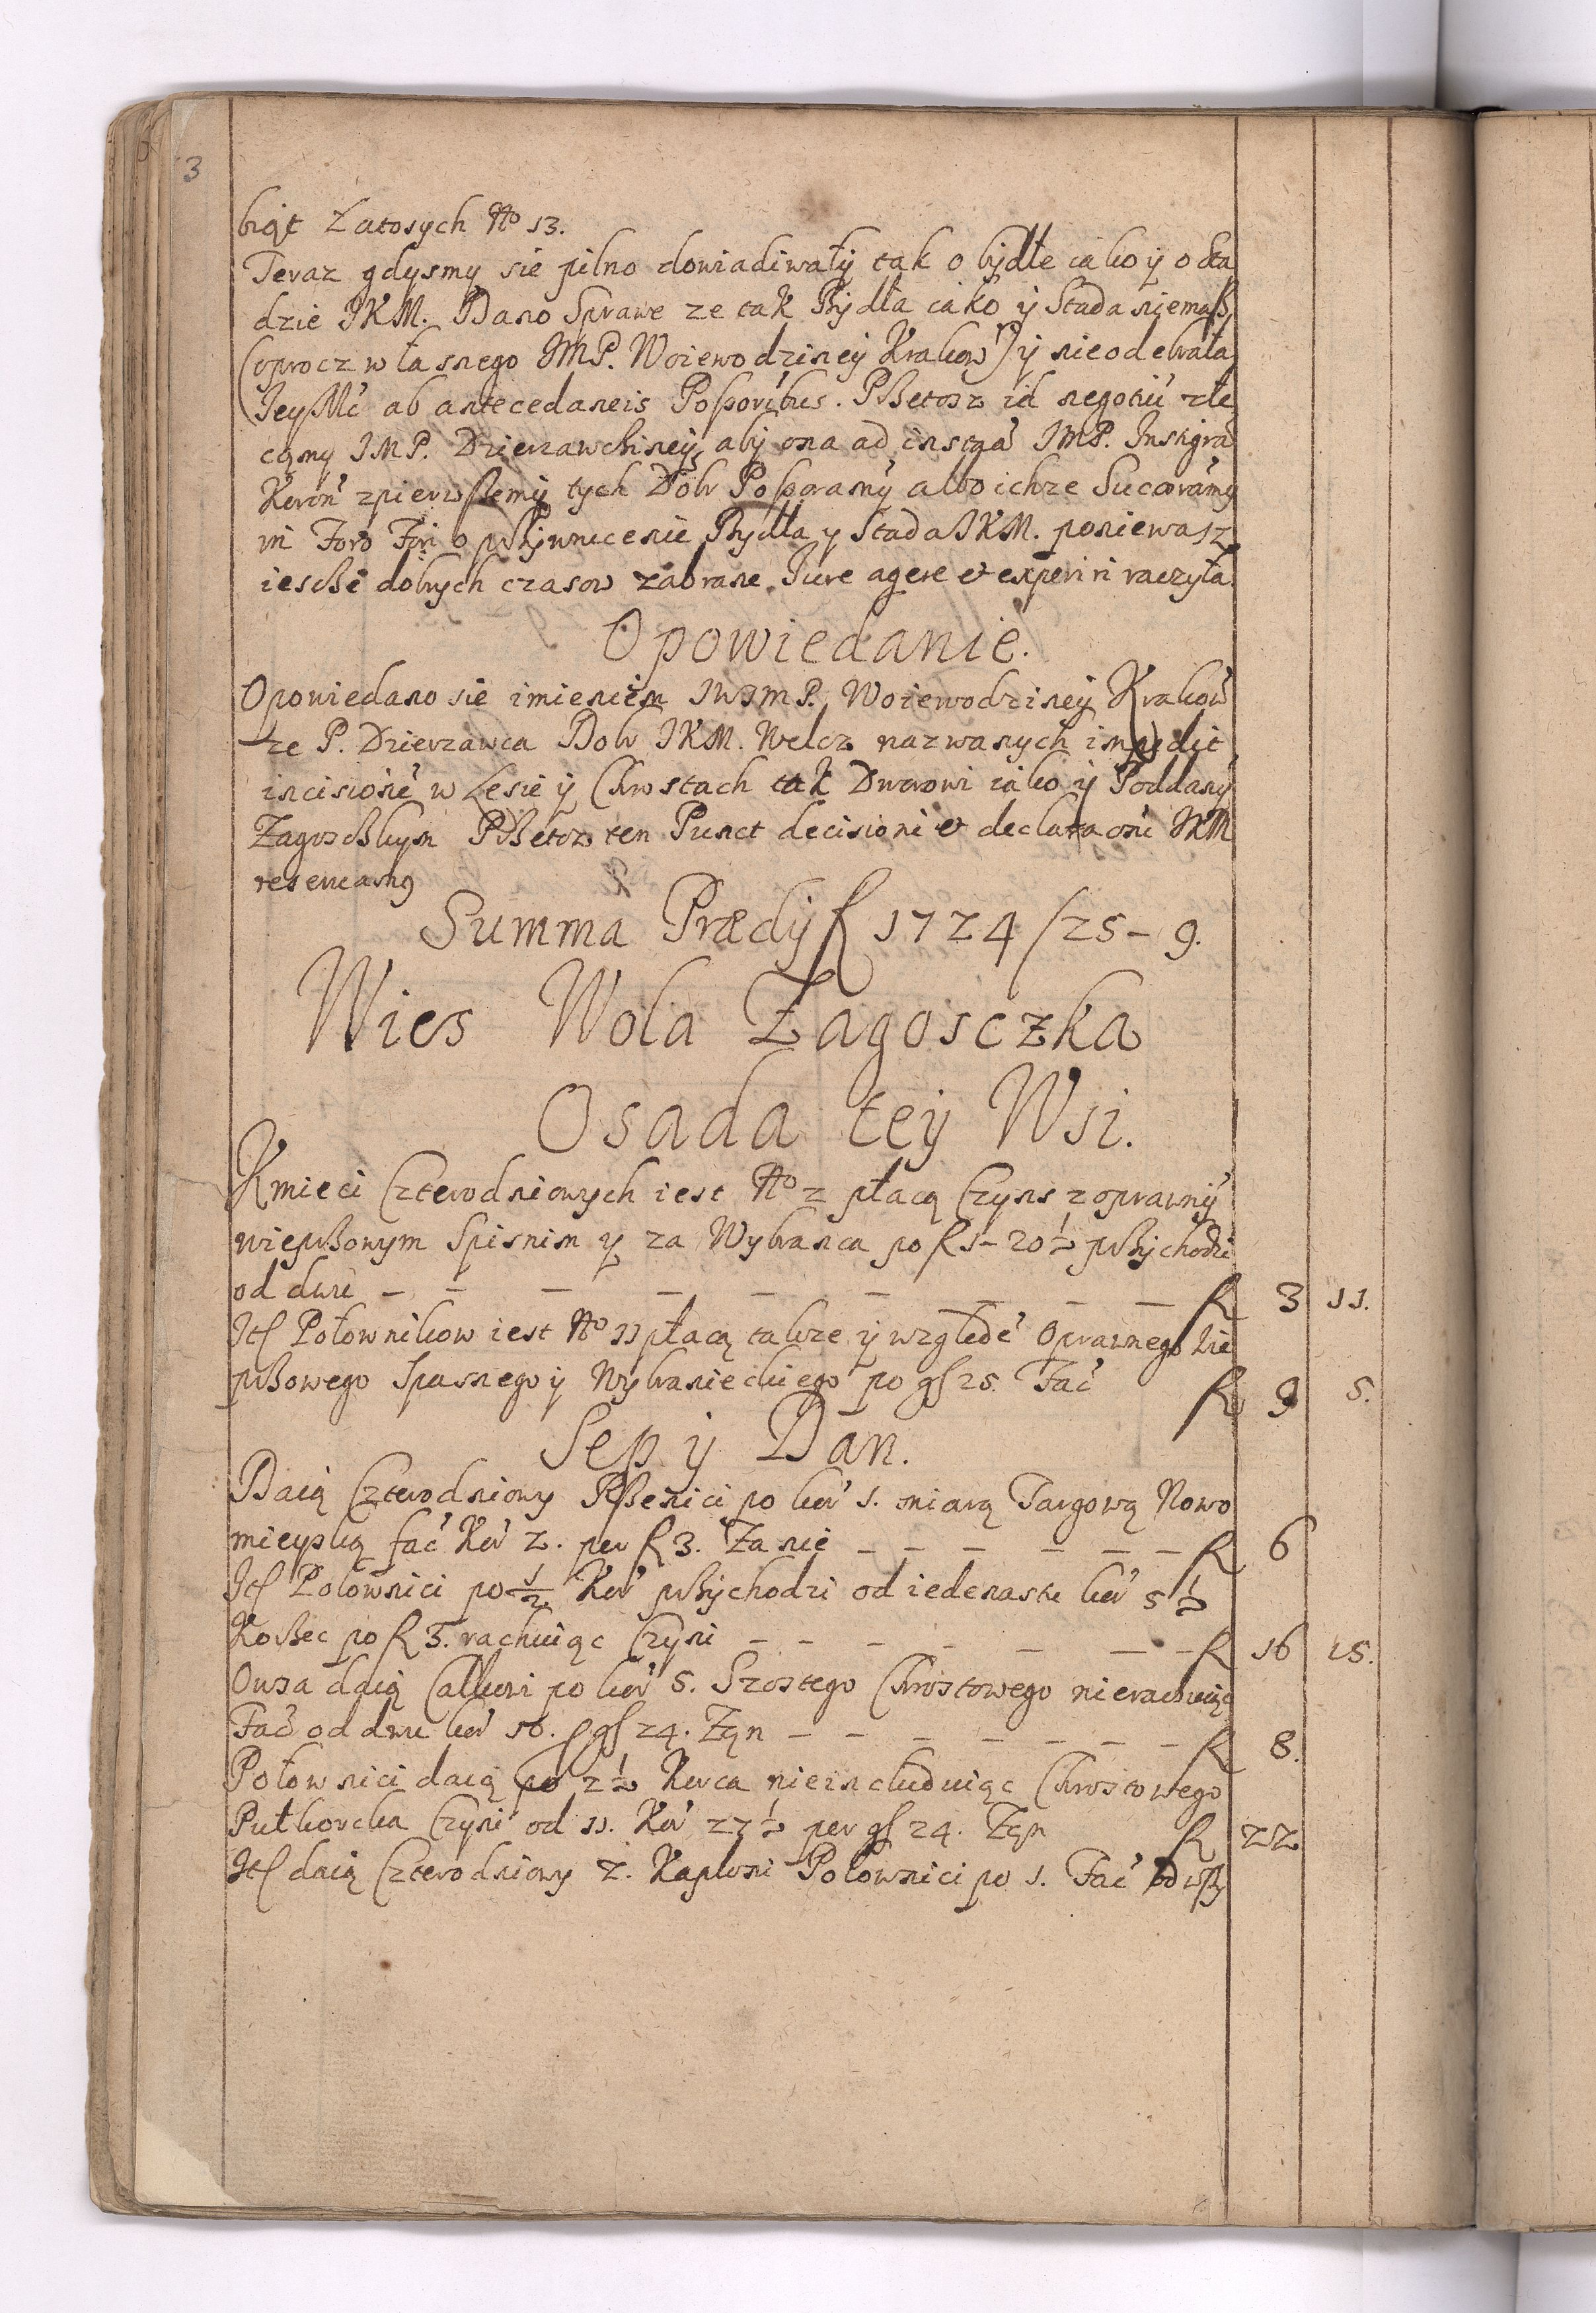 3
biąt Latosych No 13.
Teraz gdysmy sie pilno dowiadiwały tak o bydłe iako ÿ o sta
dzie JKM. Dano Sprawe ze tak Bydła iako ÿ Stada niemaß,
(oprocz własnego JMP. Woiewodzineÿ Krakow) ÿ nieodebrała
JeyMć ab antecedaneis Poßoribus. Pßetosz id negotiũ zle
camy JMP. Dzierzawchineÿ, abÿ ona ad instãã JMP. Instigrã
Koroñ zpierwßemÿ tych Dobr Poßoramÿ albo ichze Sucoramÿ
in Foro Fori o pßÿwrucenie Bydła y Stada JKM. poniewasz
iescße dobrych czasow zabrane Jure agere et experiri raczyła.
Opowiedanie.
Opowiedano sie imieniem JWJMP. Woiewodzineÿ Krakow
ze P. Dzierzawca Dobr JKM. Welcz nazwanych impedit
incisione w Lesie ÿ Chrostach tak Dworowi iako ÿ Poddanÿ
Zagoscßkym Pßetoz ten Punct decisioni et declaraoni JKM
reseruamy
Summa Prædÿ R 1724/25-9.
Wies Wola Zagosczka
Osada teÿ Wsi.
Kmieci Czterodniowych iest No 2 płacą Czyns z oprawnÿ
wiepßowym Spisnim y za Wybranca po R 1-20 1/2 pßychodzi
od dwu - - - - - - - - - R 3 11.
Itl Połownikow iest No 11 płacą takze ÿ wzgledẽ Oprawnego Wie
pßowego Spasnego ÿ Wybranieckiego po gl 25. Fać R 9 5.
Sep ÿ Dan.
Daią Czterodniowy Pßenici po kor 1. miarą Targową Nowo
mieyską fać Kor 2. per R 3. Za nie - - - - - - R 6
Itl Połownici po 1/2 Kor pßychodzi od iedenastu kor 5 1/2
Koßec po R 3. rachuiąc Czyni - - - - - - - R 16 15.
Owsa daią Całkowi po kor 5. Szostego Chrostowego nierachuiąc
Fać od dwu kor 10. p gl 24. Zęn - - - - - - - R 8.
Połownici daią po 2 1/2 Korca nieincluduiąc Chrostowego
Pułkorcka Czyni od 11. Kor 27 1/2 per gl 24. Zęn R 22
Itl daią Czterodniowy 2. Kapłoni Połownici po 1. Fać od wß